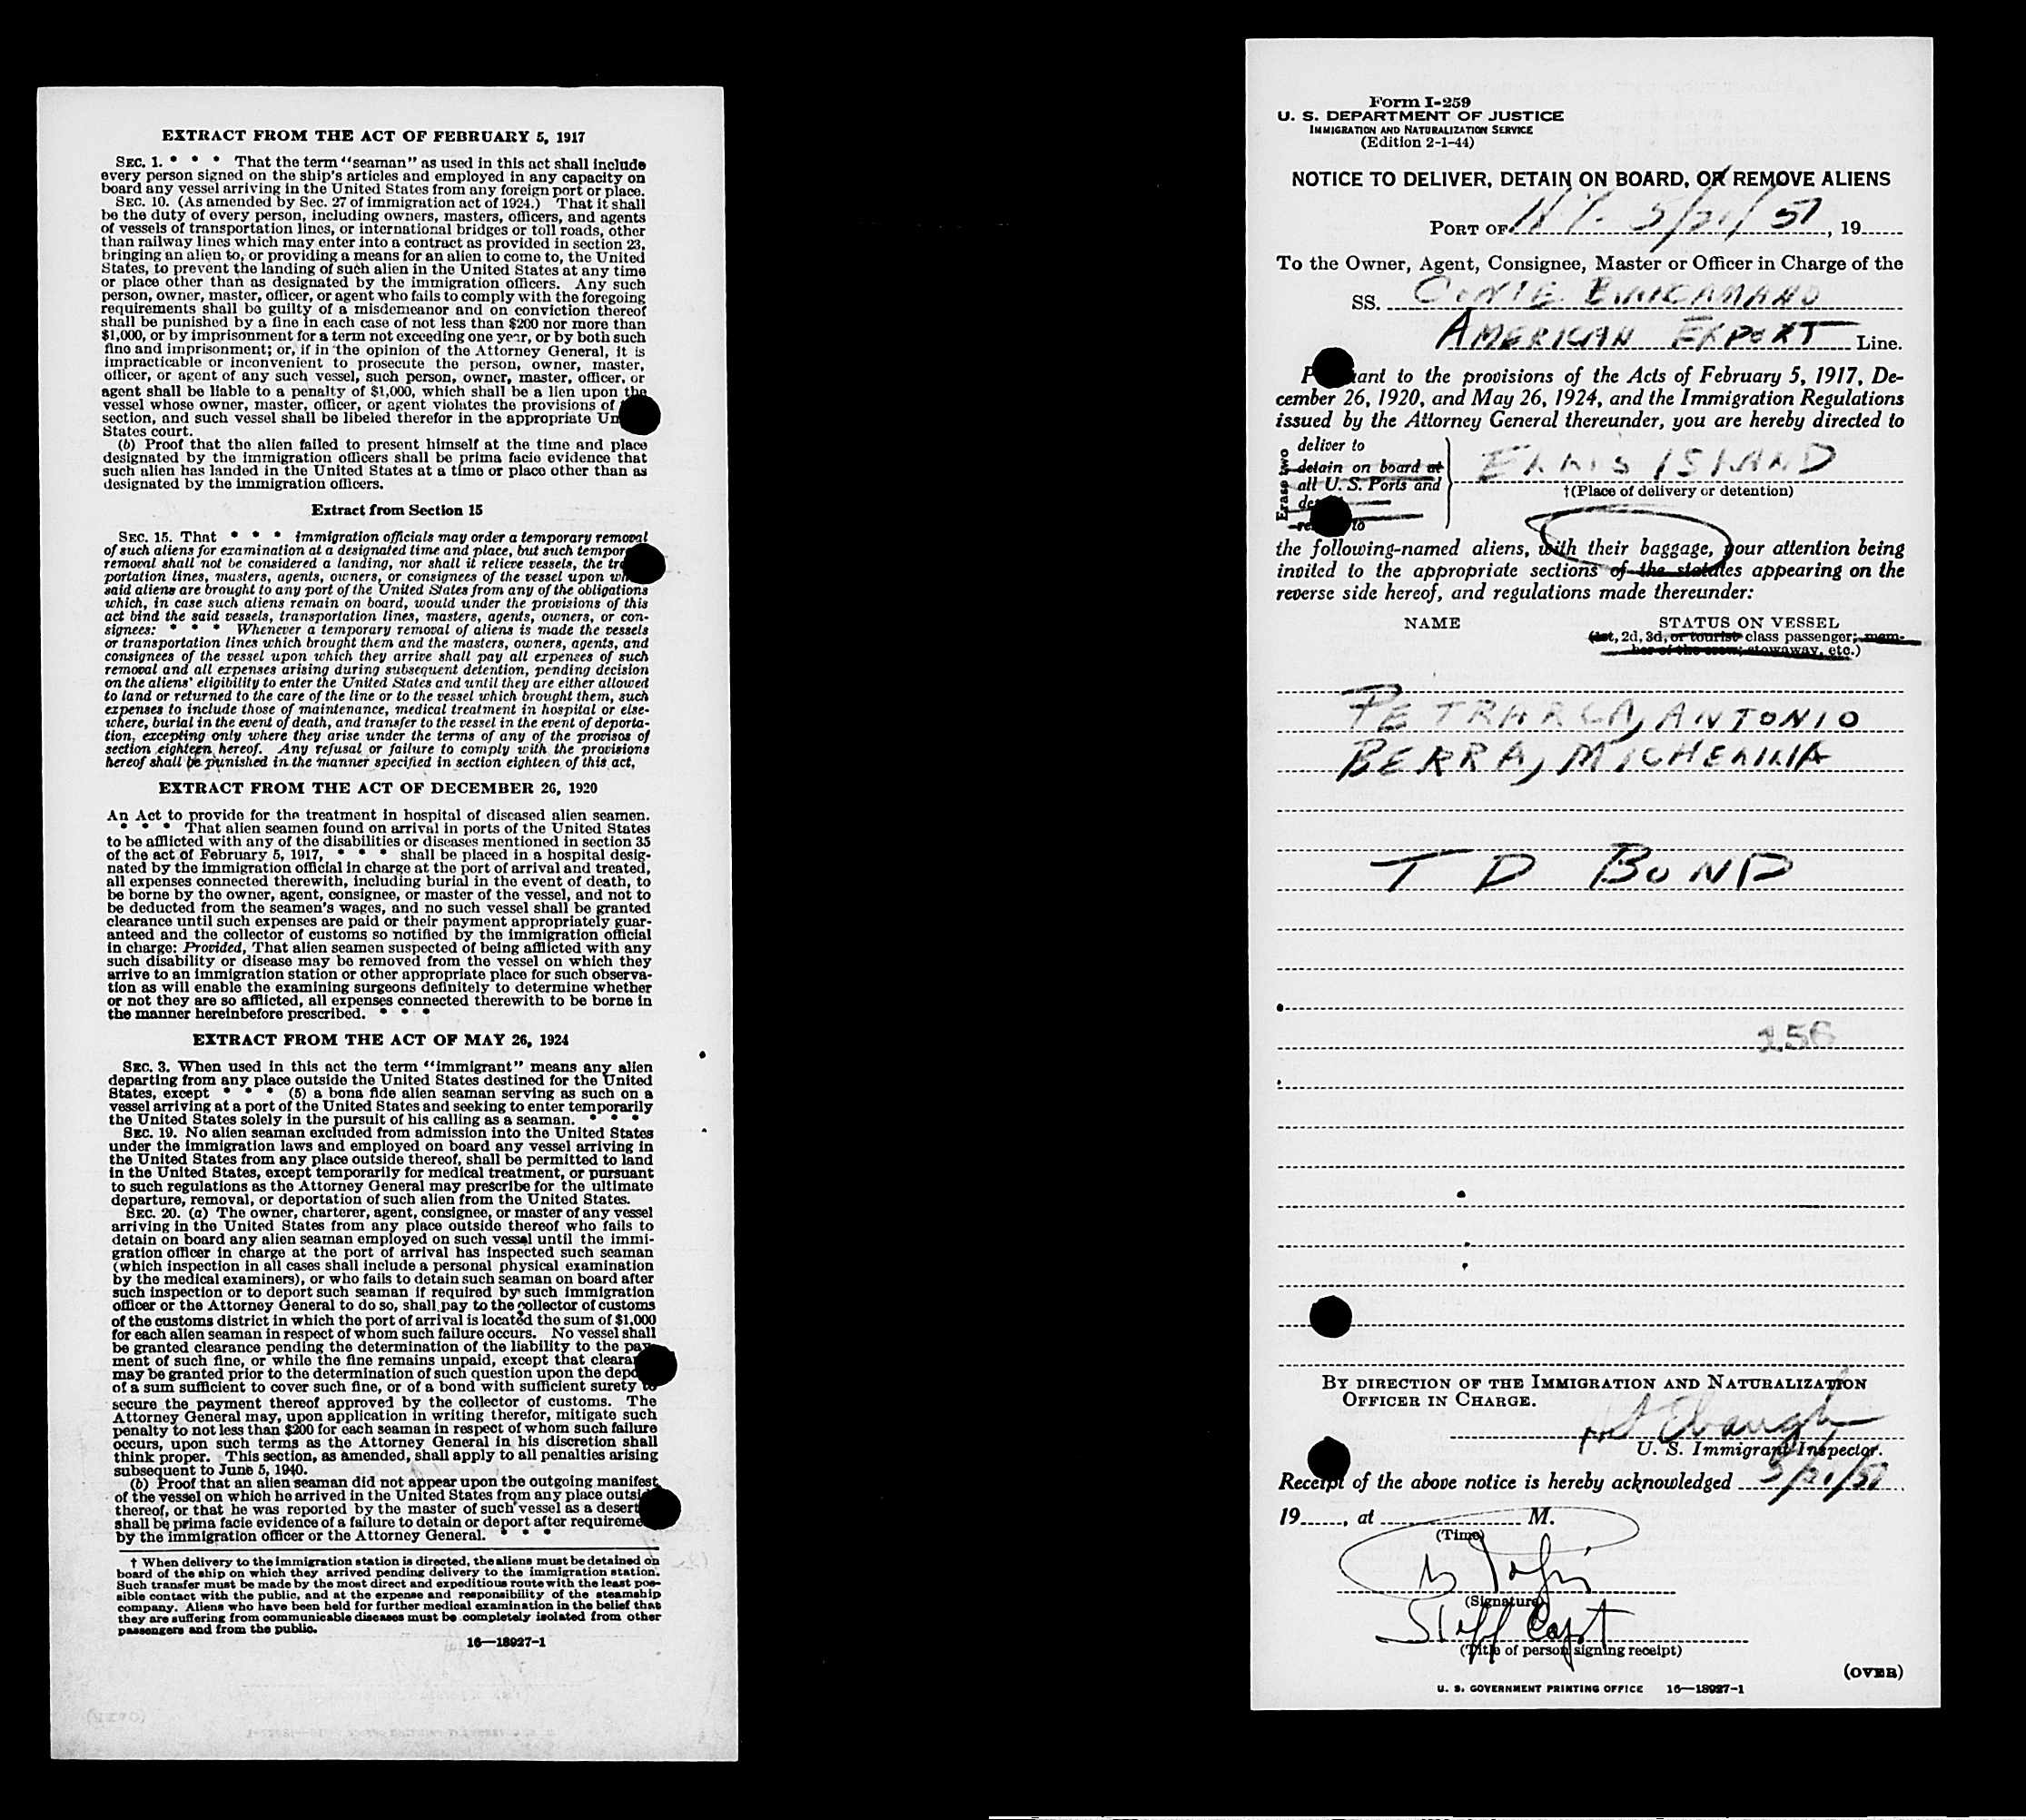 EXTRACT FROM THE ACT OF FEBRUARY 5, 1917
SEC. 1. * * * That the term "seaman" as used in this act shall include
every person signed on the ship's articles and employed in any capacity on
board any vessel arriving in the United States from any foreign port or place.
SEC. 10. (As amended by Sec. 27 of immigration act of 1924.) That it shall
be the duty of every person, including owners, masters, officers, and agents
of vessels of transportation lines, or international bridges or toll roads, other
than railway lines which may enter into a contract as provided in section 23,
bringing an alien to, or providing a means for an alien to come to, the United
States, to prevent the landing of such alien in the United States at any time
or place other than as designated by the immigration officers. Any such
person, owner, master, officer, or agent who fails to comply with the foregoing
requirements shall be guilty of a misdemeanor and on conviction thereof
shall be punished by a fine in each case of not less than $200 nor more than
$1,000, or by imprisonment for a term not exceeding one year, or by both such
fine and imprisonment; or, if in the opinion of the Attorney General, it is
impracticable or inconvenient to prosecute the person, owner, master,
officer, or agent of any such vessel, such person, owner, master, officer, or
agent shall be liable to a penalty of $1,000, which shall be a lien upon the
vessel whose owner, master, officer, or agent violates the provisions of
section, and such vessel shall be libeled therefor in the appropriate Un
States court.
(b) Proof that the alien failed to present himself at the time and place
designated by the immigration officers shall be prima facie evidence that
such alien has landed in the United States at a time or place other than as
designated by the immigration officers.
Extract from Section 15
SEC. 15. That * * * immigration officials may order a temporary removal
of such aliens for examination at a designated time and place, but such tempor
removal shall not be considered a landing, nor shall it relieve vessels, the tra
portation lines, masters, agents, owners, or consignees of the vessel upon wh
said aliens are brought to any port of the United States from any of the obligations
which, in case such aliens remain on board, would under the provisions of this
act bind the said vessels, transportation lines, masters, agents, owners, or con-
signees: * * * Whenever a temporary removal of aliens is made the vessels
or transportation lines which brought them and the masters, owners, agents, and
consignees of the vessel upon which they arrive shall pay all expenses of such
removal and all expenses arising during subsequent detention, pending decision
on the aliens' eligibility to enter the United States and until they are either allowed
to land or returned to the care of the line or to the vessel which brought them, such
expenses to include those of maintenance, medical treatment in hospital or else-
where, burial in the event of death, and transfer to the vessel in the event of deporta-
tion, excepting only where they arise under the terms of any of the provisos of
section eighteen hereof. Any refusal or failure to comply with the provisions
hereof shall be punished in the manner specified in section eighteen of this act.
EXTRACT FROM THE ACT OF DECEMBER 26, 1920
An Act to provide for the treatment in hospital of diseased alien seamen.
* * * That alien seamen found on arrival in ports of the United States
to be afflicted with any of the disabilities or diseases mentioned in section 35
of the act of February 5, 1917, * * * shall be placed in a hospital desig-
nated by the immigration official in charge at the port of arrival and treated,
all expenses connected therewith, including burial in the event of death, to
be borne by the owner, agent, consignee, or master of the vessel, and not to
be deducted from the seamen's wages, and no such vessel shall be granted
clearance until such expenses are paid or their payment appropriately guar-
anteed and the collector of customs so notified by the immigration official
in charge: Provided, That alien seamen suspected of being afflicted with any
such disability or disease may be removed from the vessel on which they
arrive to an immigration station or other appropriate place for such observa-
tion as will enable the examining surgeons definitely to determine whether
or not they are so afflicted, all expenses connected therewith to be borne in
the manner hereinbefore prescribed. * * *
EXTRACT FROM THE ACT OF MAY 26, 1924
SEC. 3. When used in this act the term "immigrant" means any alien
departing from any place outside the United States destined for the United
States, except * * * (5) a bona fide alien seaman serving as such on a
vessel arriving at a port of the United States and seeking to enter temporarily
the United States solely in the pursuit of his calling as a seaman. * * *
SEC. 19. No alien seaman excluded from admission into the United States
under the immigration laws and employed on board any vessel arriving in
the United States from any place outside thereof, shall be permitted to land
in the United States, except temporarily for medical treatment, or pursuant
to such regulations as the Attorney General may prescribe for the ultimate
departure, removal, or deportation of such alien from the United States.
SEC. 20. (a) The owner, charterer, agent, consignee, or master of any vessel
arriving in the United States from any place outside thereof who fails to
detain on board any alien seaman employed on such vessel until the immi-
gration officer in charge at the port of arrival has inspected such seaman
(which inspection in all cases shall include a personal physical examination
by the medical examiners), or who fails to detain such seaman on board after
such inspection or to deport such seaman if required by such immigration
officer or the Attorney General to do so, shall pay to the collector of customs
of the customs district in which the port of arrival is located the sum of $1,000
for each alien seaman in respect of whom such failure occurs. No vessel shall
be granted clearance pending the determination of the liability to the pay-
ment of such fine, or while the fine remains unpaid, except that cleara
may be granted prior to the determination of such question upon the depo
of a sum sufficient to cover such fine, or of a bond with sufficient surety to
secure the payment thereof approved by the collector of customs. The
Attorney General may, upon application in writing therefor, mitigate such
penalty to not less than $200 for each seaman in respect of whom such failure
occurs, upon such terms as the Attorney General in his discretion shall
think proper. This section, as amended, shall apply to all penalties arising
subsequent to June 5, 1940.
(b) Proof that an alien seaman did not appear upon the outgoing manifest
of the vessel on which he arrived in the United States from any place outsi
thereof, or that he was reported by the master of such vessel as a desert
shall be prima facie evidence of a failure to detain or deport after requireme
by the immigration officer or the Attorney General. * * *
† When delivery to the immigration station is directed, the aliens must be detained on
board of the ship on which they arrived pending delivery to the immigration station.
Such transfer must be made by the most direct and expeditious route with the least pos-
sible contact with the public, and at the expense and responsibility of the steamship
company. Aliens who have been held for further medical examination in the belief that
they are suffering from communicable diseases must be completely isolated from other
passengers and from the public.
16—18927-1
Form I-259
U. S. DEPARTMENT OF JUSTICE
IMMIGRATION AND NATURALIZATION SERVICE
(Edition 2-1-44)
NOTICE TO DELIVER, DETAIN ON BOARD, OR REMOVE ALIENS
PORT OF N.Y. 5/21/51, 19
To the Owner, Agent, Consignee, Master or Officer in Charge of the
SS. CONTE BIANCAMANO
AMERICAN EXPORT Line.
P ant to the provisions of the Acts of February 5, 1917, De-
cember 26, 1920, and May 26, 1924, and the Immigration Regulations
issued by the Attorney General thereunder, you are hereby directed to
Erase two
deliver to
detain on board at
all U. S. Ports and
de
re to
ELLIS ISLAND
†(Place of delivery or detention)
the following-named aliens, with their baggage, your attention being
invited to the appropriate sections of the statutes appearing on the
reverse side hereof, and regulations made thereunder:
NAME STATUS ON VESSEL
(1st, 2d, 3d, or tourist class passenger; mem-
ber of the crew; stowaway, etc.)
PETRARCA, ANTONIO
BERRA, MICHELINA
T D BOND
156
BY DIRECTION OF THE IMMIGRATION AND NATURALIZATION
OFFICER IN CHARGE.
Ebaugh
U. S. Immigrant Inspector.
Receipt of the above notice is hereby acknowledged 5/21/51
19, at M.
(Time)
(Signature)
Staff Capt
(Title of person signing receipt)
(OVER)
U. S. GOVERNMENT PRINTING OFFICE 16—18927-1